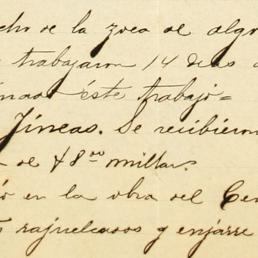 cho de la zoca de algo
trabajaron 14 dias
este trabajo=
Jíneas. Se recibieron
de 48.00 millar.
ó en la obra del Cen
rajueleados y enjarre